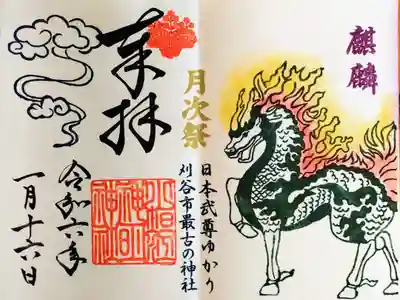 麒麟
日本武尊ゆかり
刈谷市最古の神社
月次祭
奉拝
小垣江
神明
神社
令和六年
一月十六日